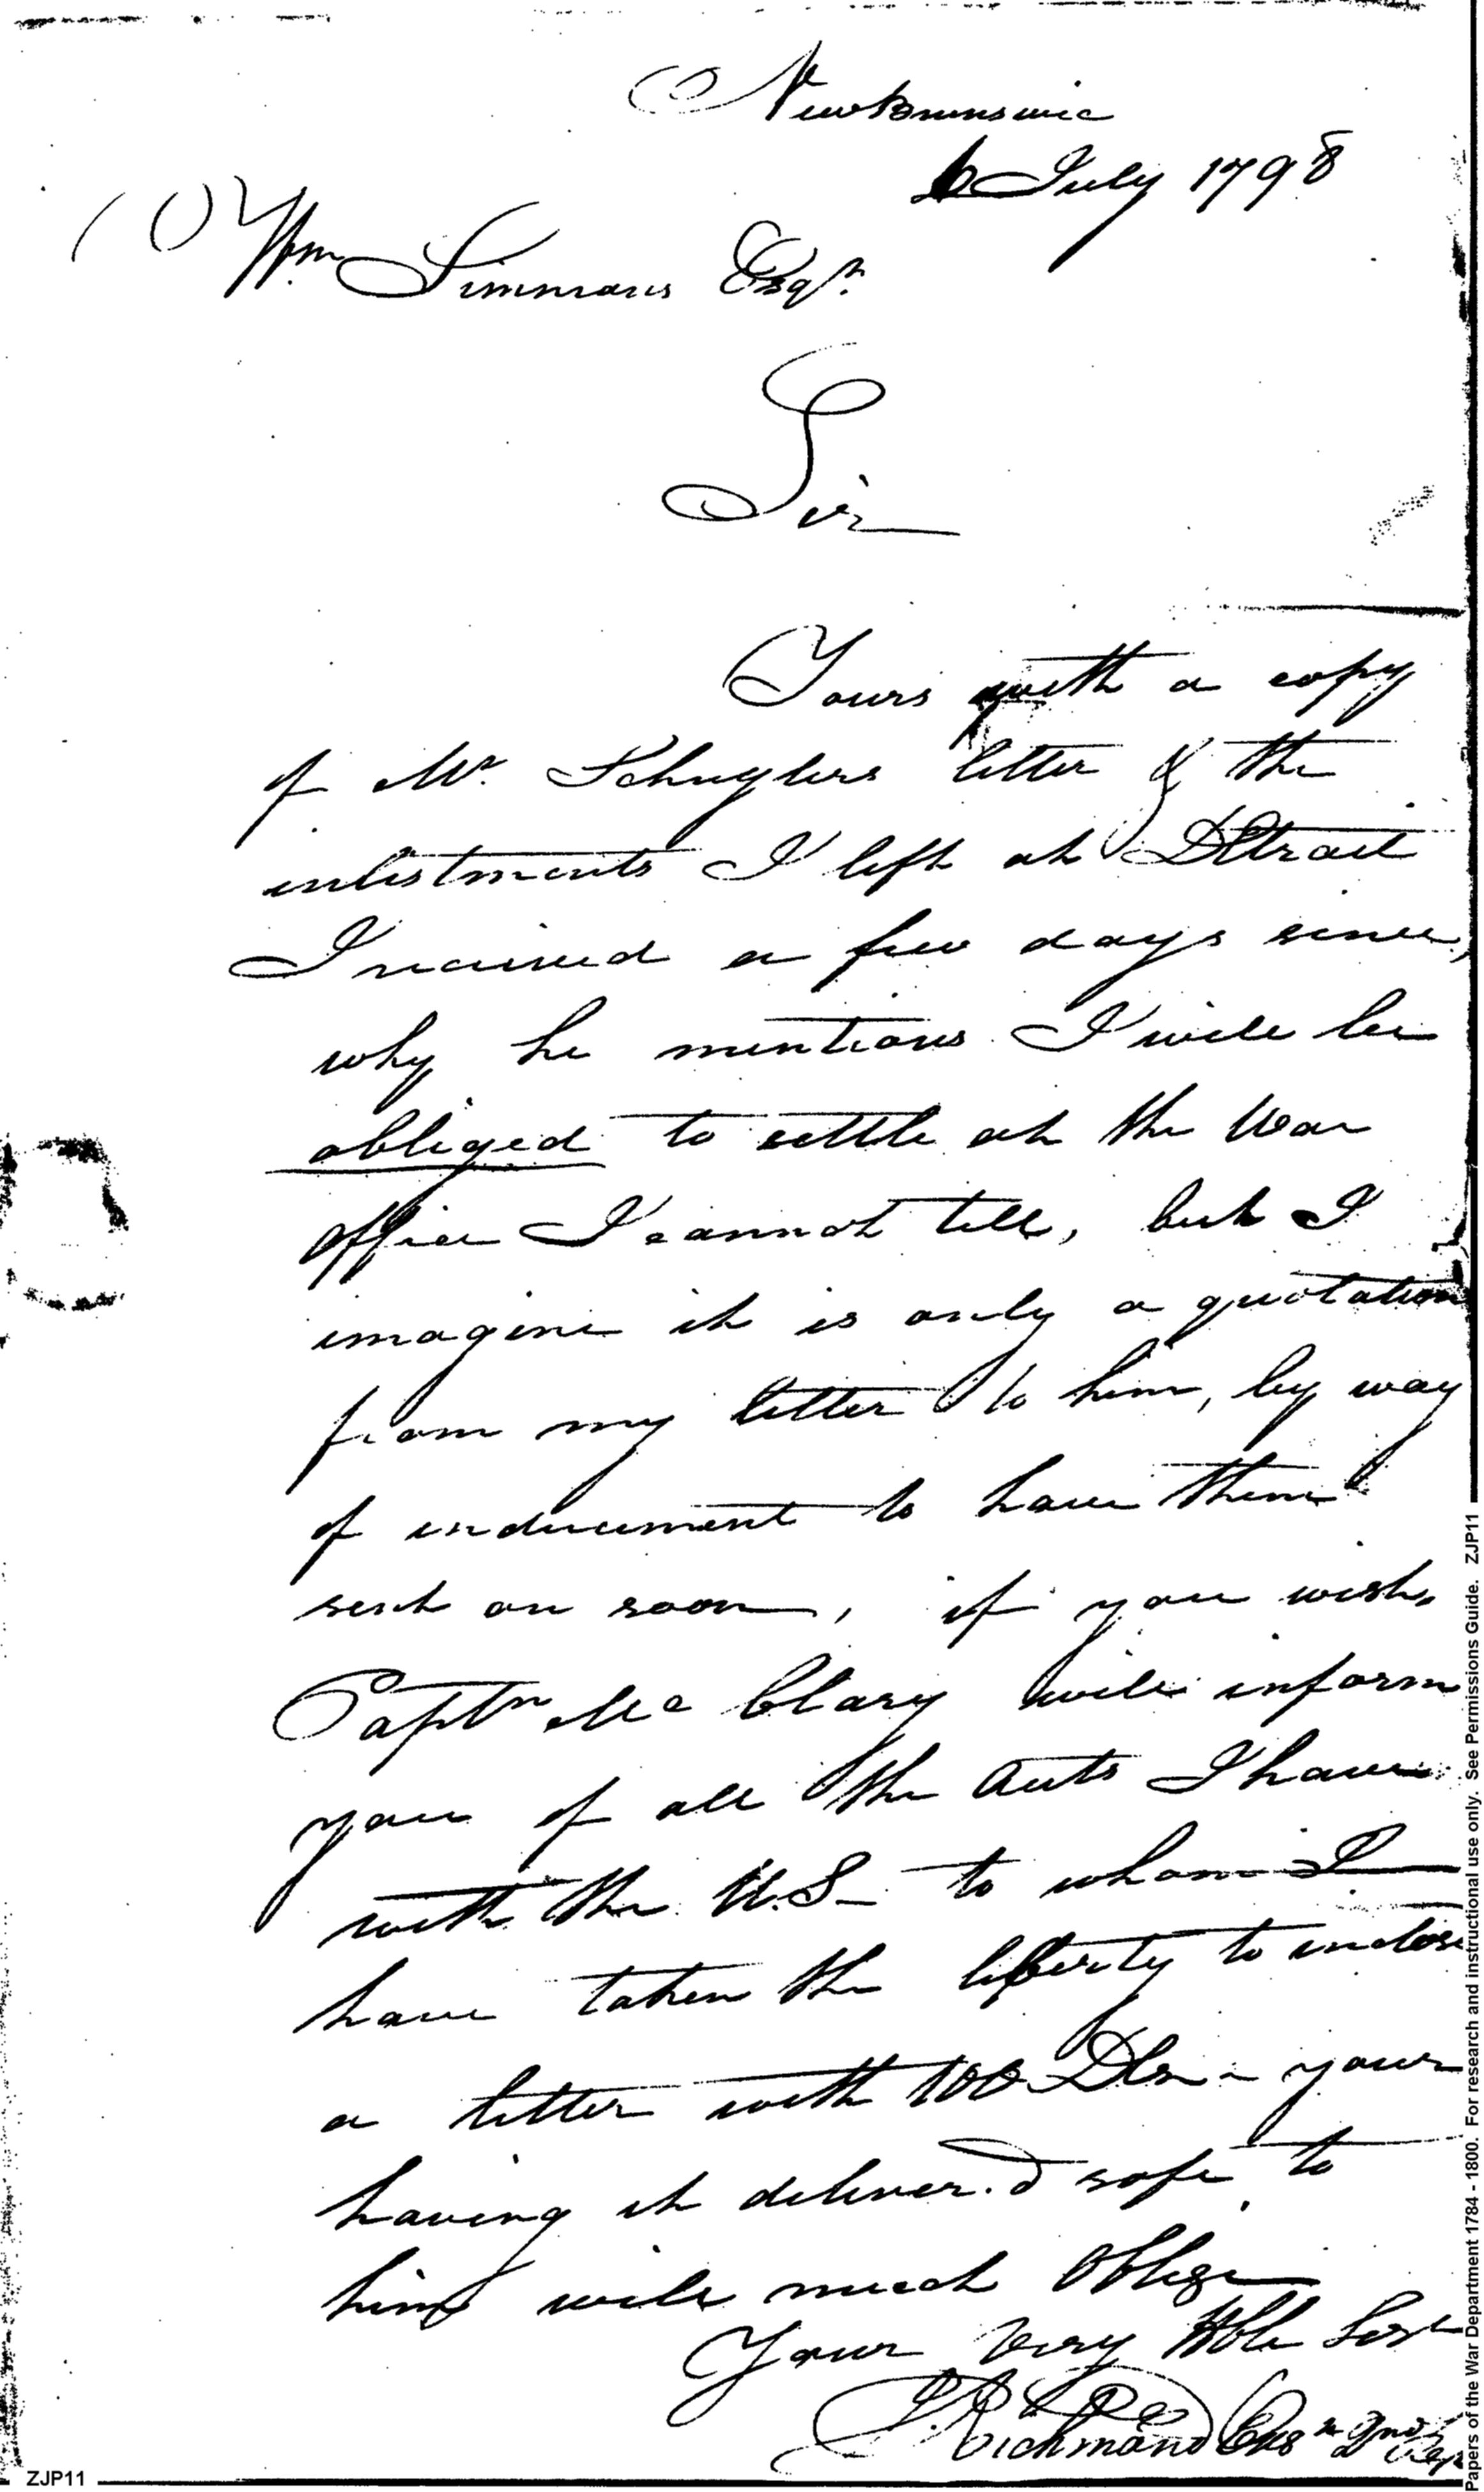 New Brunswic
6 July 1798
Wm. Simmons Esqr.
Sir
Yours with a copy
of Mr. Schuylers letter & the
inlistments I left at Detroit
I received a few days since,
why he mentions I will be
obliged to settle at the War
Office I cannot tell, but I
imagine it is only a quotation
from my letter to him, by way
of inducement to have them
sent on soon, if you wish,
Captn Mc Clary will inform
you of all the Accts I have
with the U.S— to whom I
have taken the liberty to inclose
a letter with 100 Dlrs - your
having it deliver.d safe to
him will much Oblige
Your very Hble Sert
Richmond Ens
Papers of the War Department 1784 - 1800. For research and instructional use only. See Permissions Guide. ZJP11
ZJP11